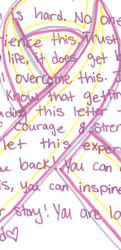 is hard. No one
rience this. Trust
life, it does get b
overcome this.
Know that gettin
ding this letter
courage & stren
let this exper
you back! You can
is, you can inspire
r story! You are lo
d♡